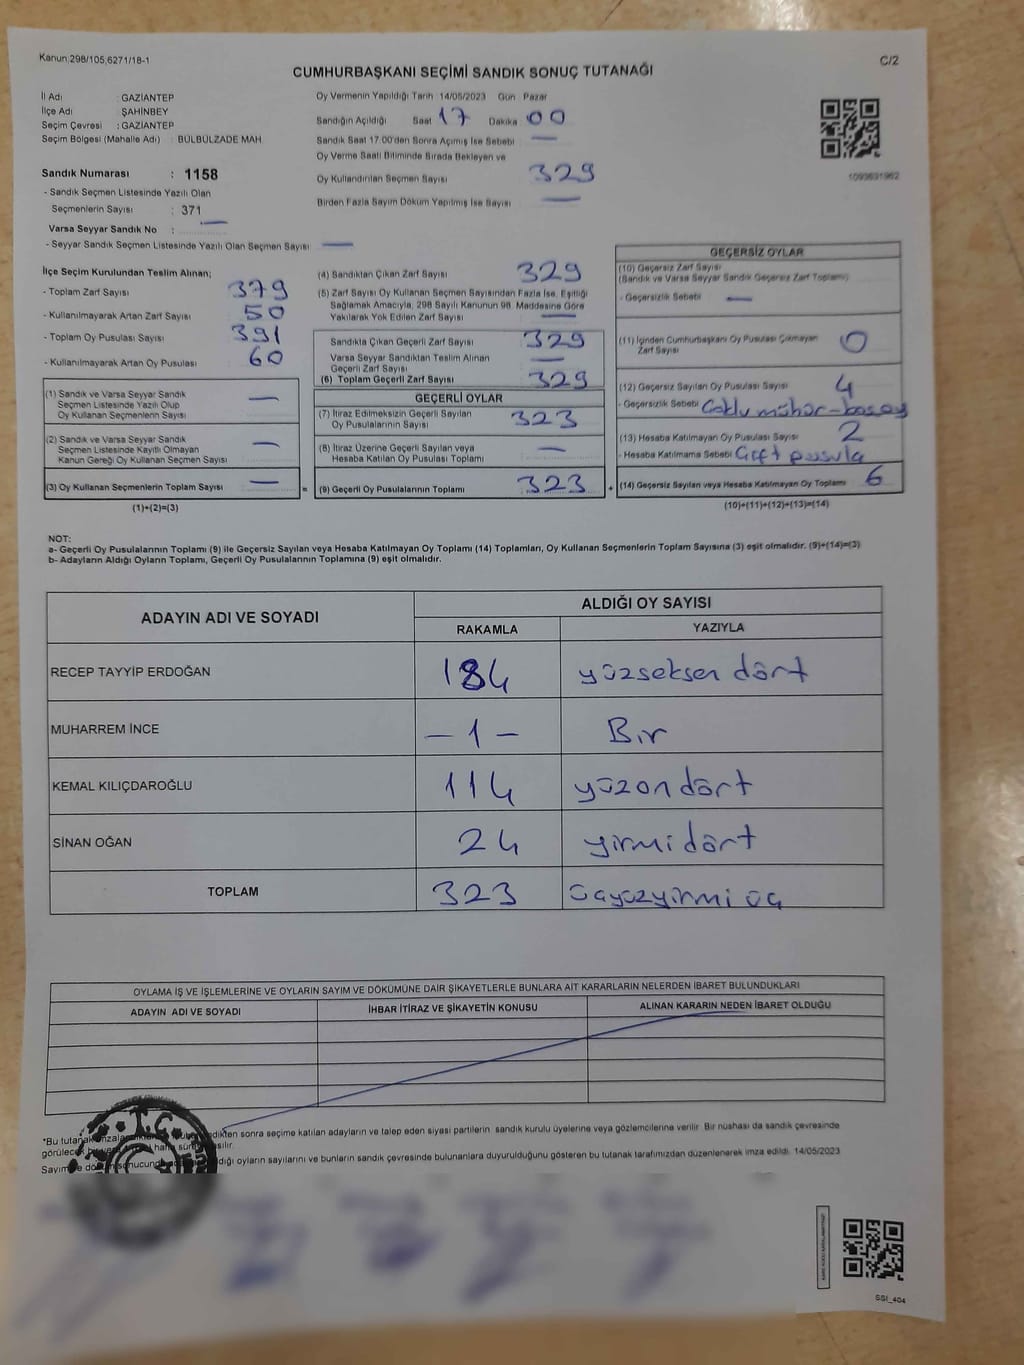 Kanun:298/105,6271/18-1
C/2
CUMHURBAŞKANI SEÇİMİ SANDIK SONUÇ TUTANAĞI
İl Adı : GAZİANTEP
İlçe Adı : ŞAHİNBEY
Seçim Çevresi : GAZİANTEP
Seçim Bölgesi (Mahalle Adı) : BÜLBÜLZADE MAH
Sandık Numarası : 1158
- Sandık Seçmen Listesinde Yazılı Olan
Seçmenlerin Sayısı : 371
Varsa Seyyar Sandık No : —
- Seyyar Sandık Seçmen Listesinde Yazılı Olan Seçmen Sayısı —
Oy Vermenin Yapıldığı Tarih 14/05/2023 Gün Pazar
Sandığın Açıldığı Saat 17 Dakika 00
Sandık Saat 17.00'den Sonra Açımış İse Sebebi —
Oy Verme Saati Bitiminde Sırada Bekleyen ve
Oy Kullandırılan Seçmen Sayısı 329
Birden Fazla Sayım Döküm Yapılmış İse Sayısı —
1093631962
İlçe Seçim Kurulundan Teslim Alınan;
- Toplam Zarf Sayısı 379
- Kullanılmayarak Artan Zarf Sayısı 50
- Toplam Oy Pusulası Sayısı 391
- Kullanılmayarak Artan Oy Pusulası 60
(1) Sandık ve Varsa Seyyar Sandık
Seçmen Listesinde Yazılı Olup
Oy Kullanan Seçmenlerin Sayısı —
(2) Sandık ve Varsa Seyyar Sandık
Seçmen Listesinde Kayıtlı Olmayan
Kanun Gereği Oy Kullanan Seçmen Sayısı —
(3) Oy Kullanan Seçmenlerin Toplam Sayısı — =
(1)+(2)=(3)
(4) Sandıktan Çıkan Zarf Sayısı 329
(5) Zarf Sayısı Oy Kullanan Seçmen Sayısından Fazla İse, Eşitliği
Sağlamak Amacıyla, 298 Sayılı Kanunun 98. Maddesine Göre
Yakılarak Yok Edilen Zarf Sayısı —
Sandıkla Çıkan Geçerli Zarf Sayısı 329
Varsa Seyyar Sandıktan Teslim Alınan
Geçerli Zarf Sayısı —
(6) Toplam Geçerli Zarf Sayısı 329
GEÇERLİ OYLAR
(7) İtiraz Edilmeksizin Geçerli Sayılan
Oy Pusulalarının Sayısı 323
(8) İtiraz Üzerine Geçerli Sayılan veya
Hesaba Katılan Oy Pusulası Toplamı —
(9) Geçerli Oy Pusulalarının Toplamı 323 +
GEÇERSİZ OYLAR
(10) Geçersiz Zarf Sayısı
(Sandık ve Varsa Seyyar Sandık Geçersiz Zarf Toplamı)
- Geçersizlik Sebebi —
(11) İçinden Cumhurbaşkanı Oy Pusulası Çıkmayan
Zarf Sayısı 0
(12) Geçersiz Sayılan Oy Pusulası Sayısı 4
- Geçersizlik Sebebi
(13) Hesaba Katılmayan Oy Pusulası Sayısı 2
- Hesaba Katılmama Sebebi Çift pusula
(14) Geçersiz Sayılan veya Hesaba Katılmayan Oy Toplamı 6
(10)+(11)+(12)+(13)=(14)
NOT:
a- Geçerli Oy Pusulalarının Toplamı (9) ile Geçersiz Sayılan veya Hesaba Katılmayan Oy Toplamı (14) Toplamları, Oy Kullanan Seçmenlerin Toplam Sayısına (3) eşit olmalıdır. (9)+(14)=(3)
b- Adayların Aldığı Oyların Toplamı, Geçerli Oy Pusulalarının Toplamına (9) eşit olmalıdır.
ADAYIN ADI VE SOYADI ALDIĞI OY SAYISI
RAKAMLA YAZIYLA
RECEP TAYYİP ERDOĞAN 184 yüzseksen dört
MUHARREM İNCE — 1 — Bir
KEMAL KILIÇDAROĞLU 114 yüzon dört
SİNAN OĞAN 24 yirmi dört
TOPLAM 323 üçyüzyirmi üç
OYLAMA İŞ VE İŞLEMLERİNE VE OYLARIN SAYIM VE DÖKÜMÜNE DAİR ŞİKAYETLERLE BUNLARA AİT KARARLARIN NELERDEN İBARET BULUNDUKLARI
ADAYIN ADI VE SOYADI İHBAR İTİRAZ VE ŞİKAYETİN KONUSU ALINAN KARARIN NEDEN İBARET OLDUĞU
T.C.
*Bu tutanak sonra seçime katılan adayların ve talep eden siyasi partilerin sandık kurulu üyelerine veya gözlemcilerine verilir. Bir nüshası da sandık çevresinde
görülecek
oyların sayılarını ve bunların sandık çevresinde bulunanlara duyurulduğunu gösteren bu tutanak tarafımızdan düzenlenerek imza edildi. 14/05/2023
SSI_404